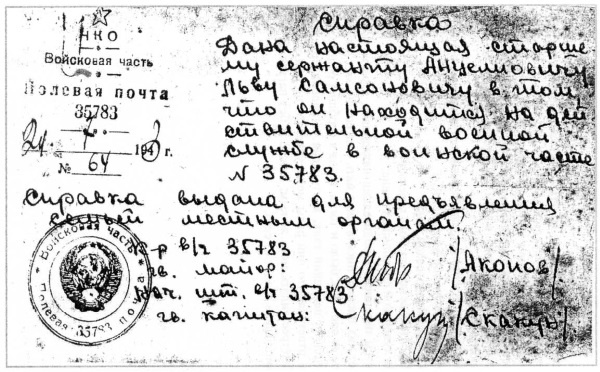 НКО
Войсковая часть
Полевая почта
35783
194 г.
№ 64
Справка
Дана настоящая старше
му сержанту Анцелиовичу
Льву Самсоновичу в том,
что он находится на дей
ствительной военной
службе в воинской части
N 35783.
Справка выдана для предъявления
семьей местным органам.
К-р в/ч 35783
гв. майор:
/Яконов/
Нач. шт. в/ч 35783
гв. капитан:
/Скакун/
Войсковая часть
Полевая почта
35783